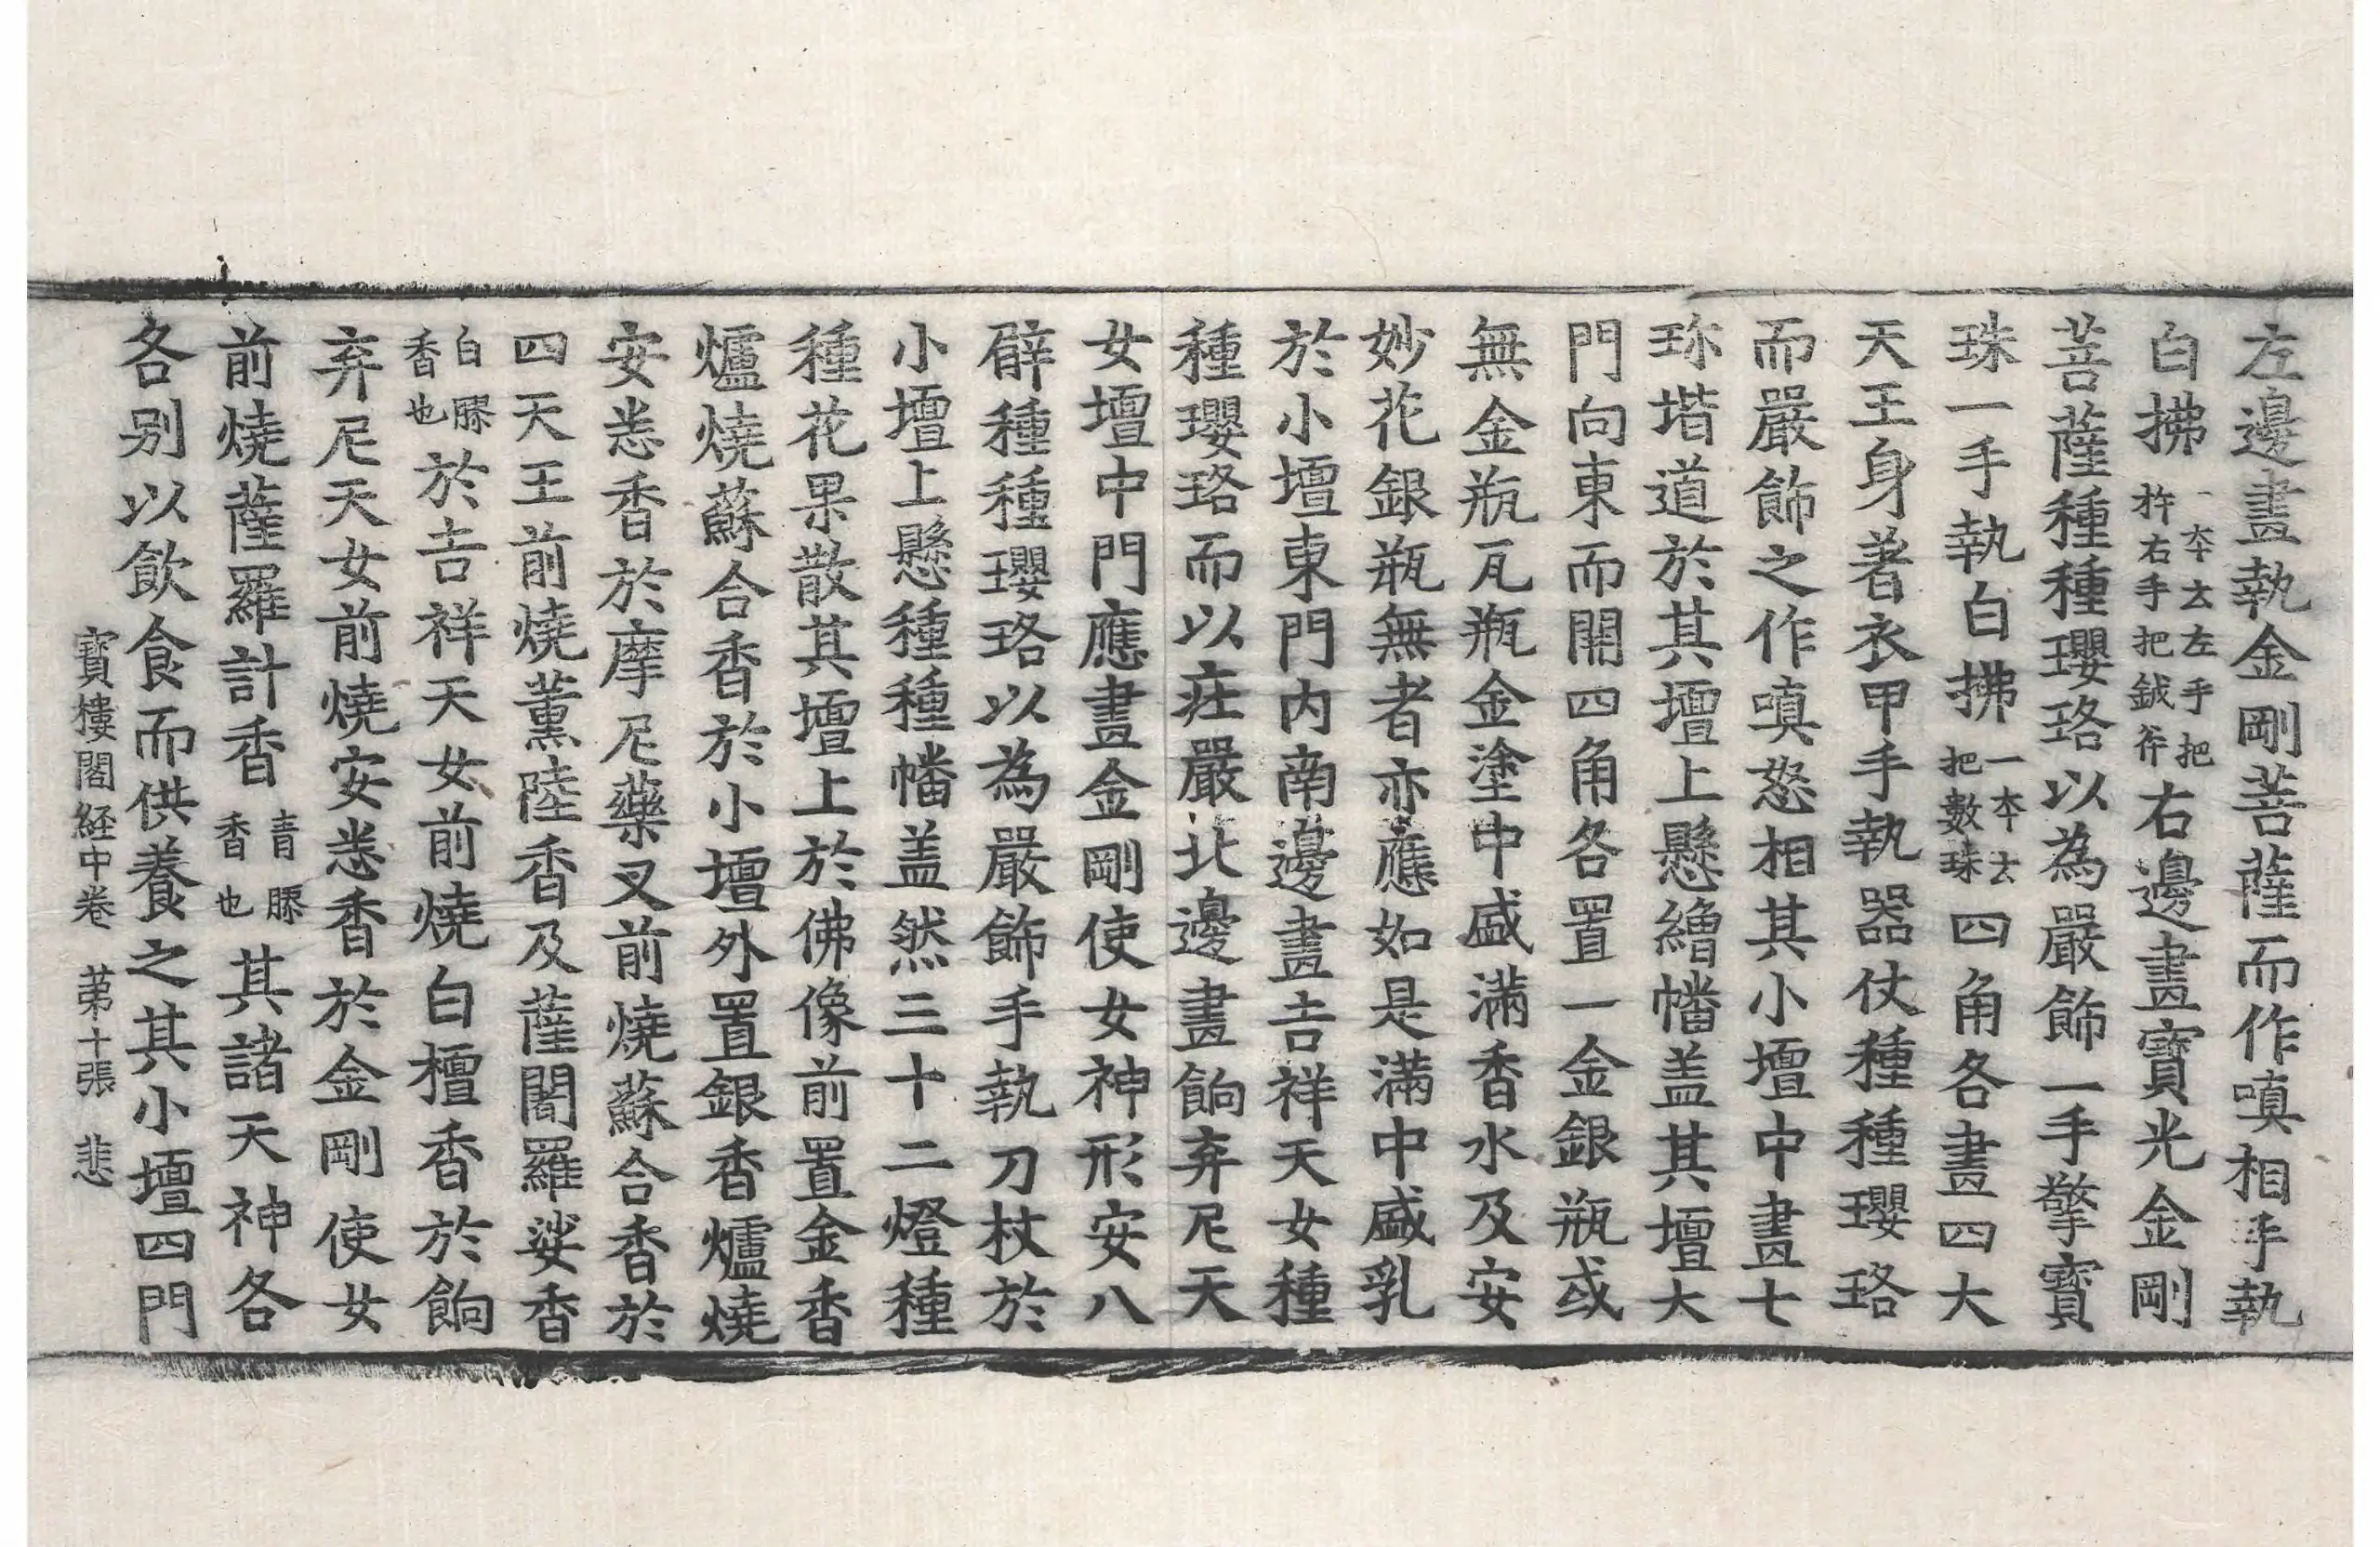 左邊畫執金剛菩薩而作嗔相手執
白拂一本云左手把杵右手把鉞斧右邊畫寶光金剛
菩薩種種瓔珞以為嚴飾一手擎寶
珠一手執白拂一本云把數珠四角各畫四大
天王身著衣甲手執器仗種種瓔珞
而嚴飾之作嗔怒相其小壇中畫七
珎堦道於其壇上懸繒幡盖其壇大
門向東而開四角各置一金銀瓶或
無金瓶瓦瓶金塗中盛滿香水及安
妙花銀瓶無者亦應如是滿中盛乳
於小壇東門内南邊畫吉祥天女種
種瓔珞而以庄嚴北邊畫餉弃尼天
女壇中門應畫金剛使女神形安八
臂種種瓔珞以為嚴飾手執刀杖於
小壇上懸種種幡盖然三十二燈種
種花果散其壇上於佛像前置金香
爐燒蘇合香於小壇外置銀香爐燒
安悉香於摩尼藥叉前燒蘇合香於
四天王前燒薰陸香及薩闍羅娑香
白膠香也於吉祥天女前燒白檀香於餉
弃尼天女前燒安悉香於金剛使女
前燒薩羅計香青膠香也其諸天神各
各別以飲食而供養之其小壇四門
寶樓閣経中卷 苐十張 悲